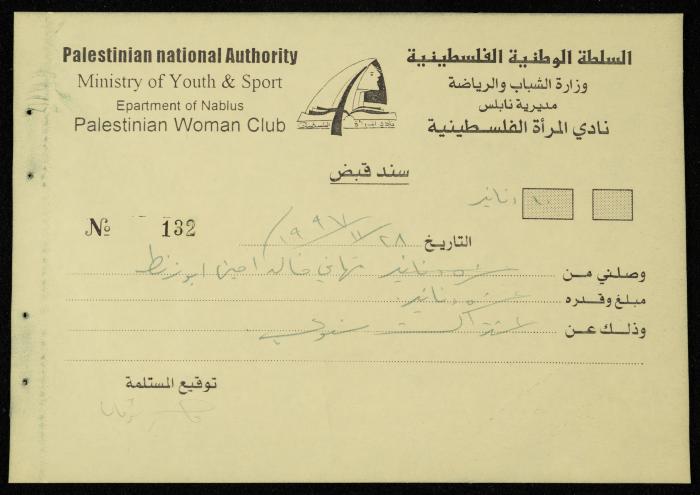 Palestinian national Authority
Ministry of Youth & Sport
Epartment of Nablus
Palestinian Woman Club
السلطة الوطنية الفلسطينية
وزارة الشباب والرياضة
مديرية نابلس
نادي المرأة الفلسطينية
سند قبض
١٠ دنانير
№ 132
التاريخ ٢٨/١١/١٩٩٧
وصلني من تهاني خالد امين ابو زنط
مبلغ وقدره عشرة دنانير
وذلك عن اشتراك سنوي
توقيع المستلمة